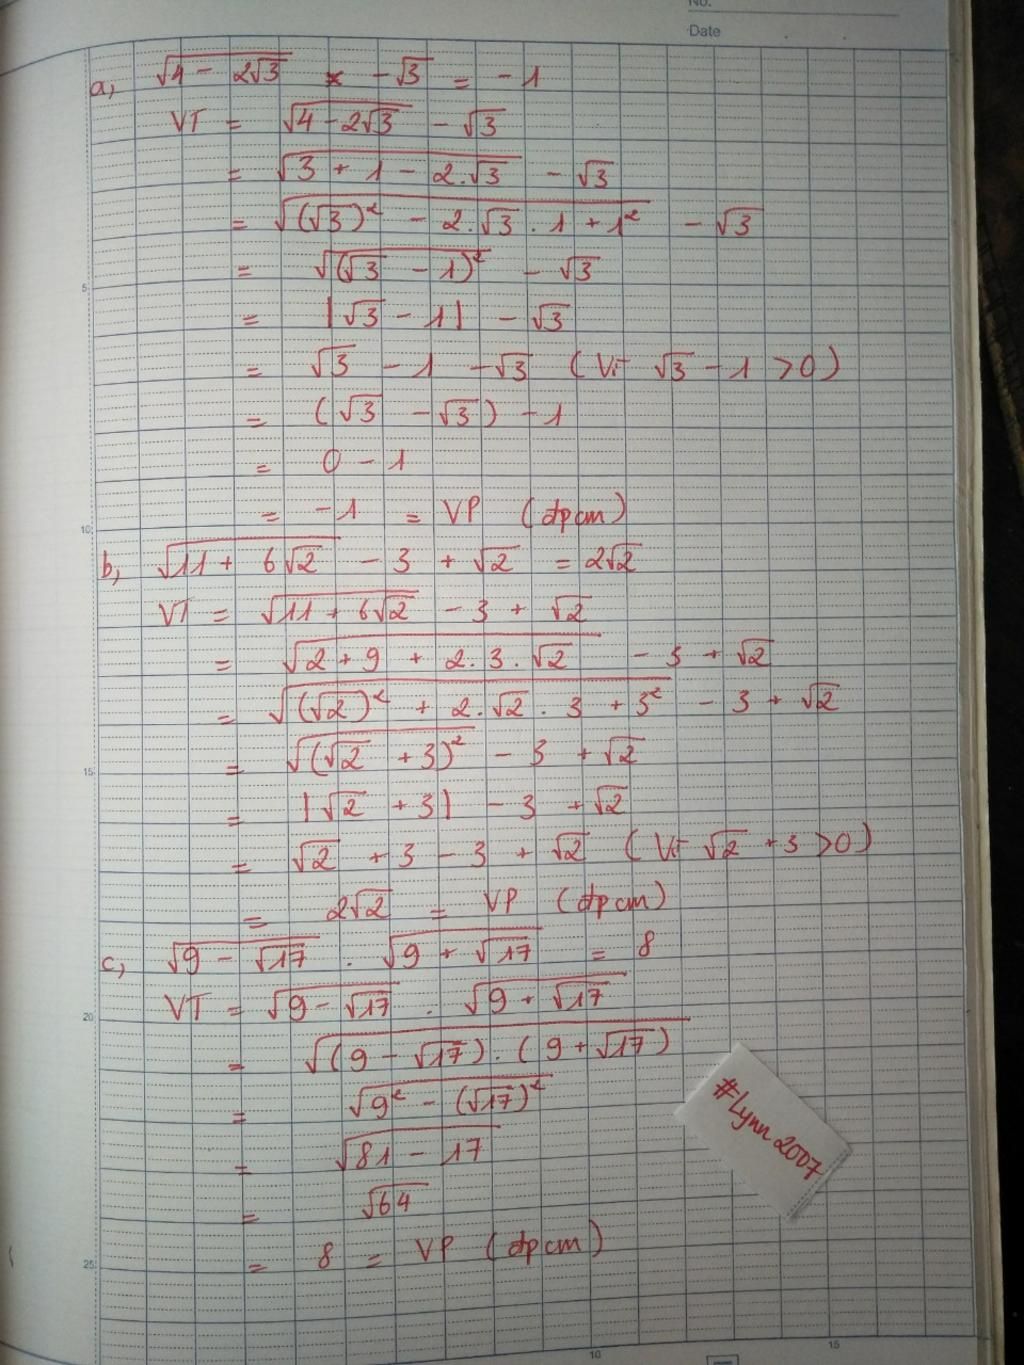 No.
Date
a, √(4 - 2√3) - √3 = -1
VT = √(4 - 2√3) - √3
= √(3 + 1 - 2.√3) - √3
= √((√3)² - 2.√3 . 1 + 1²) - √3
= √((√3 - 1)²) - √3
= |√3 - 1| - √3
= √3 - 1 - √3 (Vì √3 - 1 > 0)
= (√3 - √3) - 1
= 0 - 1
= -1 = VP (đpcm)
b, √(11 + 6√2) - 3 + √2 = 2√2
VT = √(11 + 6√2) - 3 + √2
= √(2 + 9 + 2.3.√2) - 3 + √2
= √((√2)² + 2.√2 . 3 + 3²) - 3 + √2
= √((√2 + 3)²) - 3 + √2
= |√2 + 3| - 3 + √2
= √2 + 3 - 3 + √2 (Vì √2 + 3 > 0)
= 2√2 = VP (đpcm)
c, √(9 - √17) . √(9 + √17) = 8
VT = √(9 - √17) . √(9 + √17)
= √((9 - √17).(9 + √17))
= √(9² - (√17)²)
= √(81 - 17)
= √64
= 8 = VP (đpcm)
#Lynn2007
5
10
15
20
25
10
15